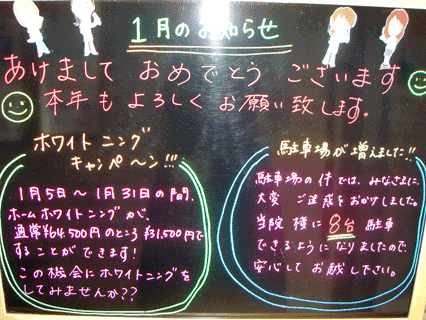 1月のお知らせ
あけまして おめでとう ございます
本年も よろしく お願い致します。
ホワイトニング
キャンペーン!!!
1月5日～1月31日の間、
ホームホワイトニングが、
通常¥64,500のところ ¥31,500で
することができます!
この機会にホワイトニングを
してみませんか??
駐車場が増えました!!
駐車場の件では、みなさまに、
大変 ご迷惑をおかけしました。
当院 横に 8台 駐車
できるようになりましたので
安心して お越し下さい。